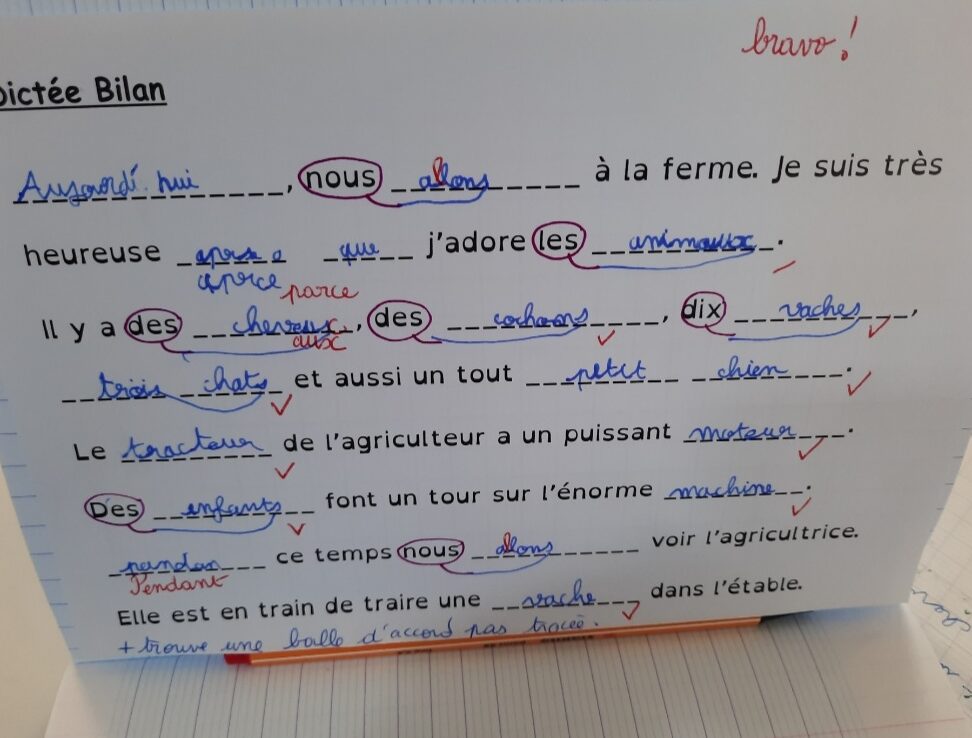 bravo!
Dictée Bilan
Aujourdi hui, nous allons à la ferme. Je suis très
heureuse que j'adore les animaux.
aprce parce
Il y a des cheveux, des cochons, dix vaches,
aux
trois chats et aussi un tout petit chien.
Le tracteur de l'agriculteur a un puissant moteur.
Des enfants font un tour sur l'énorme machine.
pandan ce temps nous allons voir l'agricultrice.
Pendant
Elle est en train de traire une vache dans l'étable.
+ trouve une balle d'accord pas tracée.